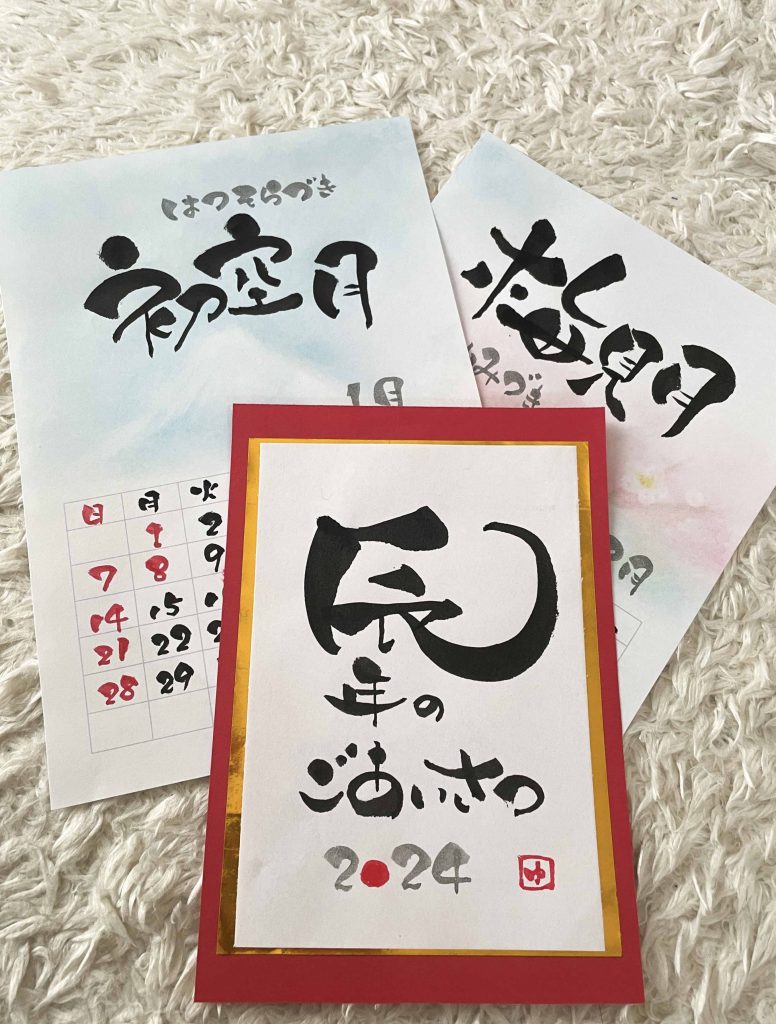 はつそらづき
初空月
1月
日 月 火
1 2
7 8 9
14 15 1
21 22 2
28 29
梅見月
みづき
2月
辰
年の
ごあいさつ
2024
ゆ